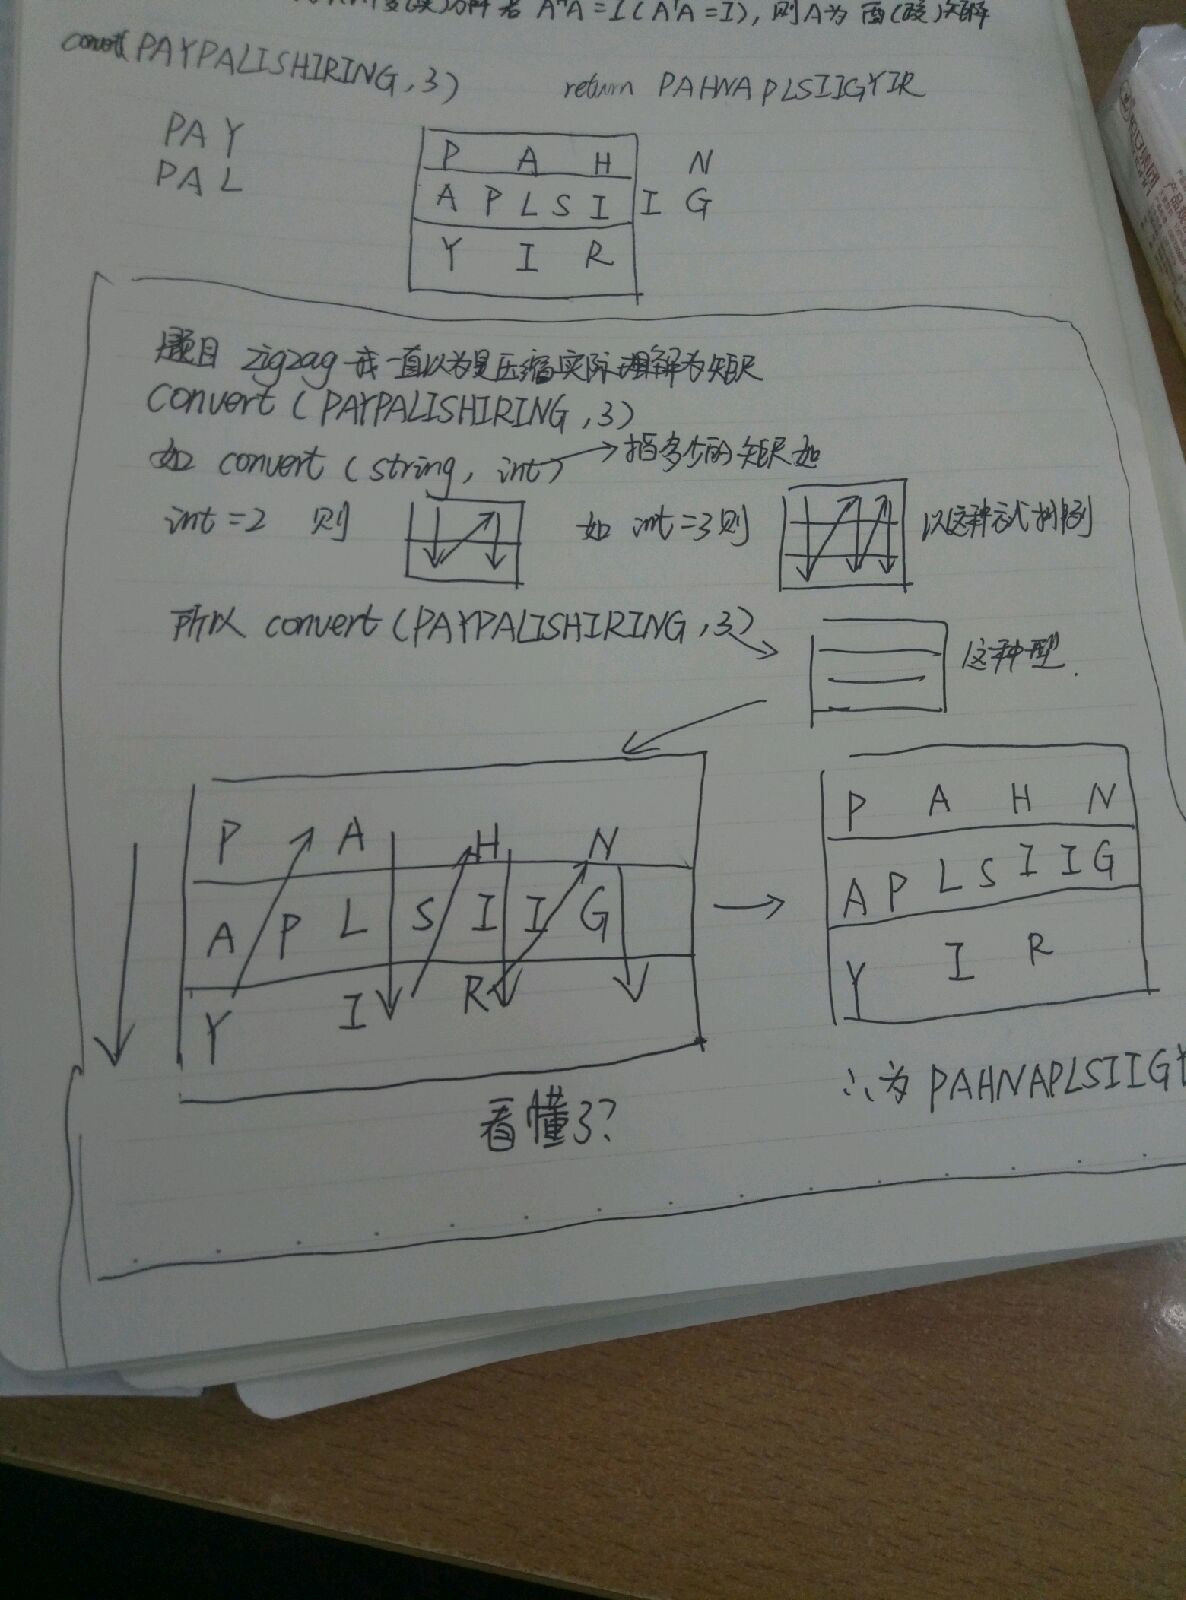 分解若 AᴴA=I(AᵀA=I), 则A为酉(酸)矩解
convert(PAYPALISHIRING,3) return PAHNAPLSIIGYIR
PAY
PAL
P A H N
A P L S I I G
Y I R
题目 zigzag 我一直以为是压缩实际理解为矩尺
convert(PAYPALISHIRING,3)
如 convert(string, int) → 指多少的矩尺如
int=2 则 如 int=3则 以这种方式排列
所以 convert(PAYPALISHIRING,3) 这种型.
P A H N
A P L S I I G
Y I R
P A H N
A P L S I I G
Y I R
看懂3?
∴为 PAHNAPLSIIGY